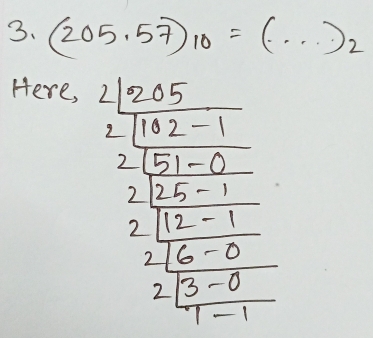 3. (205.57)10 = (....)2
Here, 2|205
2|102-1
2|51-0
2|25-1
2|12-1
2|6-0
2|3-0
1-1